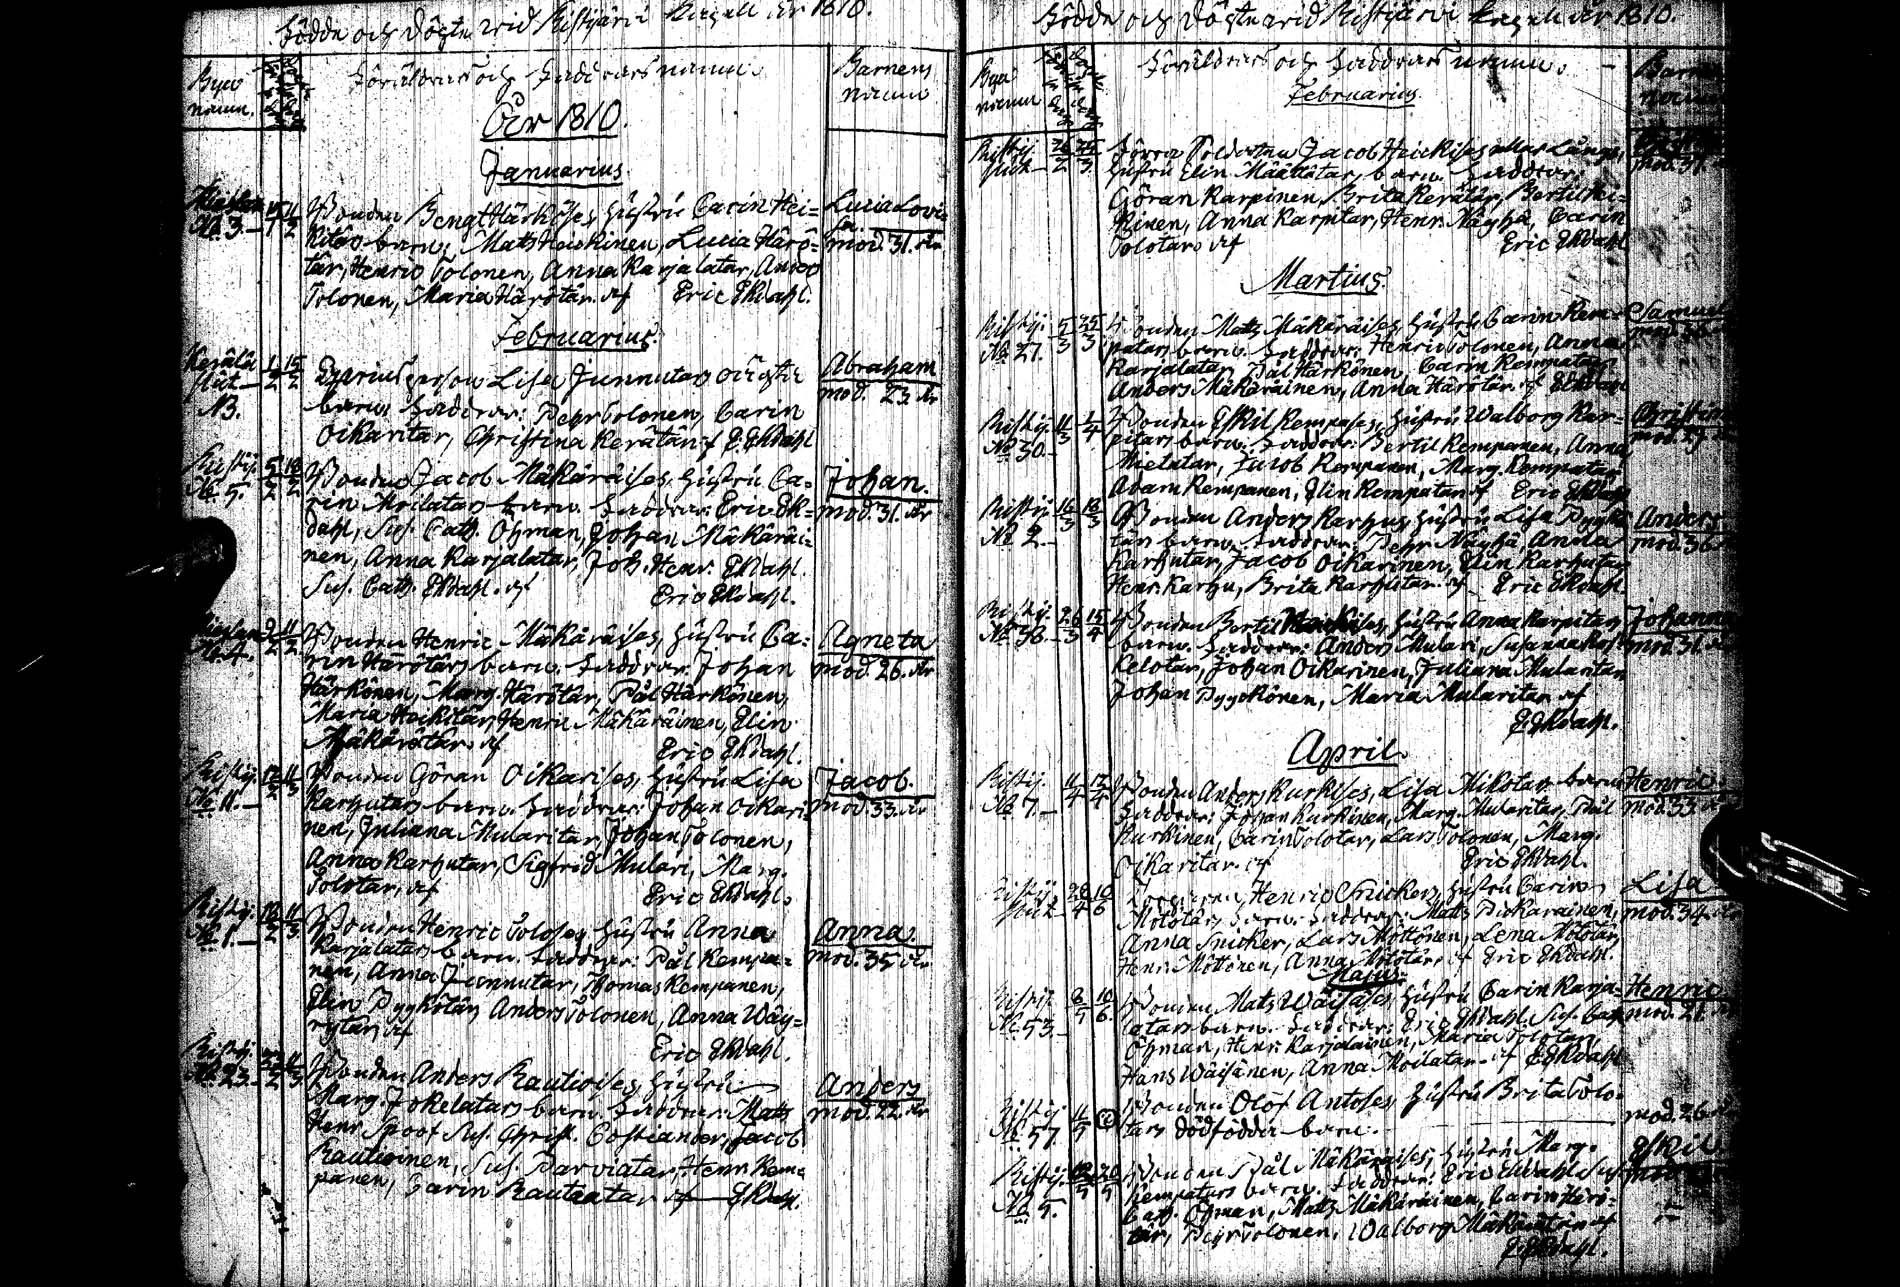 Födde och Döpte vid Ristijärvi Kapell år 1810.
Byn namn.
Föräldrars och Faddrars namn.
Barnens namn
År 1810.
Januarius
No 3.
Bonden Bengt Härköses hustru Carin Hei=
kitärs barn. Mats Heikkinen, Lucia Härö=
tär, Henric Tolonen, Anna Karjalatar, Anders
Tolonen, Maria Härötär. af Eric Ekdahl.
Lucia Lovi=
sa.
mod. 31. år
Februarius.
Kerälä
NB.
1/2 15/2
Lisa Junnutars oächta
barn. Faddrar: Pehr Tolonen, Carin
Oikaritar, Christina Kerätär. af E. Ekdahl
Abraham
mod. 23. år
Ristij.
No 5.
Bonden Jacob Mäkäräises hustru Ca=
rin Moilatars barn. Faddrar: Eric Ek=
dahl, Sus. Cath. Ohman, Johan Mäkäräi=
nen, Anna Karjalatar, Joh. Henr. Ekdahl.
Sus. Cath. Ekdahl. af Eric Ekdahl.
Johan.
mod. 31. år
No 4.
Bonden Henric Mäkäräises hustru Ca=
rin Härötärs barn. Faddrar: Johan
Härkönen, Marg. Härötär, Pål Härkönen,
Maria Heikitär, Henric Mäkäräinen, Elin
Mäkärötär. af Eric Ekdahl.
Agneta
mod. 26. år
Ristij.
No 11.
Bonden Göran Oikarises hustru Lisa
Karhutars barn. Faddrar: Johan Oikari=
nen, Juliana Mularitar, Johan Tolonen,
Anna Karhutar, Sigfrid Mulari, Marg.
Tolotar, af Eric Ekdahl.
Jacob.
mod. 33. år
Ristij.
No 1.
Bonden Henric Toloses hustru Anna
Karjalatars barn. Faddrar: Pål Kempa=
nen, Anna Junnutar, Thomas Kempanen,
Elin Pyykötär, Anders Tolonen, Anna Wäy=
rytär, af
Eric Ekdahl.
Anna
mod. 35 år
Ristij.
No 23.
Bonden Anders Rautioises hustru
Marg. Jokelatars barn. Faddrar: Mats
Henr. Spoof, Sus. Christ. Costiander, Jacob
Rautioinen, Sus. Parviatar, Henr. Kem=
panen, Carin Rautiatar af Ekdahl.
Anders
mod. 22. år
Födde och Döpte vid Ristijärvi Kapell år 1810.
Byn namn
Föräldrars och Faddrars namn.
Februarius.
Ristij.
Förra Soldaten Jacob Heickises
hustru Elin Määttätärs barn. Faddrar:
Göran Karpinen, Brita Kerätär, Bertil Hei=
kinen, Anna Karpitar, Henr. Näyhä, Carin
Tolotar. af Eric Ekdahl
mod. 31.
Martius.
Ristij.
No 27.
5/3 25/3
Bonden Mats Mäkäräises hustru Carin Kem=
patars barn. Faddrar: Henric Tolonen, Anna
Karjalatar, Pål Härkönen, Carin Kempatar,
Anders Mäkäräinen, Anna Härötär. af Ekdahl
Samuel
Ristij.
No 30.
11/3 1/4
Bonden Eskil Kempases hustru Walborg Kar=
pitars barn. Faddrar: Bertil Kempanen, Anna
Mietatar, Jacob Kempanen, Marg. Kempatar
Adam Kempanen, Elin Kempatar. af Eric Ekdahl
Christina
Ristij.
No 2.
16/3 18/3
Bonden Anders Karhus hustru Lisa Pyykö=
tärs barn. Faddrar: Pehr Näyhä, Anna
Karhutar, Jacob Oikarinen, Elin Karhutar
Henr. Karhu, Brita Karhutar. af Eric Ekdahl.
Anders
mod. 36.
Ristij.
No 36.
26/3 15/4
Bonden Bertil Heickises, hustru Anna Karpitars
barn. Faddrar: Anders Mulari, Susanna
Kelotar, Johan Oikarinen, Juliana Mularitar
Johan Pyykkönen, Maria Mularitar. af
E. Ekdahl.
Johanna
mod. 31. år
April.
Ristij.
No 7.
Bonden Anders Kurkises, Lisa Mikotars barn
Faddrar: Johan Kurkinen, Marg. Mularitar, Pål
Kurkinen, Carin Tolotar, Lars Tolonen, Marg.
Oikaritar. af Eric Ekdahl.
Henric.
mod. 33 år
Ristij.
Henric Snickers hustru Carin
Mötötärs barn. Faddrar: Mats Pickarainen,
Anna Snicker, Lars Möttönen, Lena Mötötär,
Henr. Möttönen, Anna Mötötär. af Eric Ekdahl.
Lisa
mod. 34. år
Majus.
Ristij.
No 53.
Bonden Mats Wäisäses hustru Carin Karja=
latars barn. Faddrar: Eric Ekdahl, Sus. Cath.
Öhman, Henr. Karjalainen, Maria Tolotar,
Hans Wäisänen, Anna Moilatar. af E. Ekdahl
Henric
mod. 21. år
Ristij.
No 57.
Bonden Olof Antoses hustru Brita Tolo=
tars dödfödda barn.
mod. 26 år
Ristij.
No 5.
Bonden Pål Mäkäräises, hustru Marg.
Kempatars barn. Faddrar: Eric Ekdahl, Sus.
Cath. Öhman, Mats Mäkäräinen, Carin Härö=
tär, Pehr Tolonen, Walborg Mäkärötär. af
E. Ekdahl.
Eskil